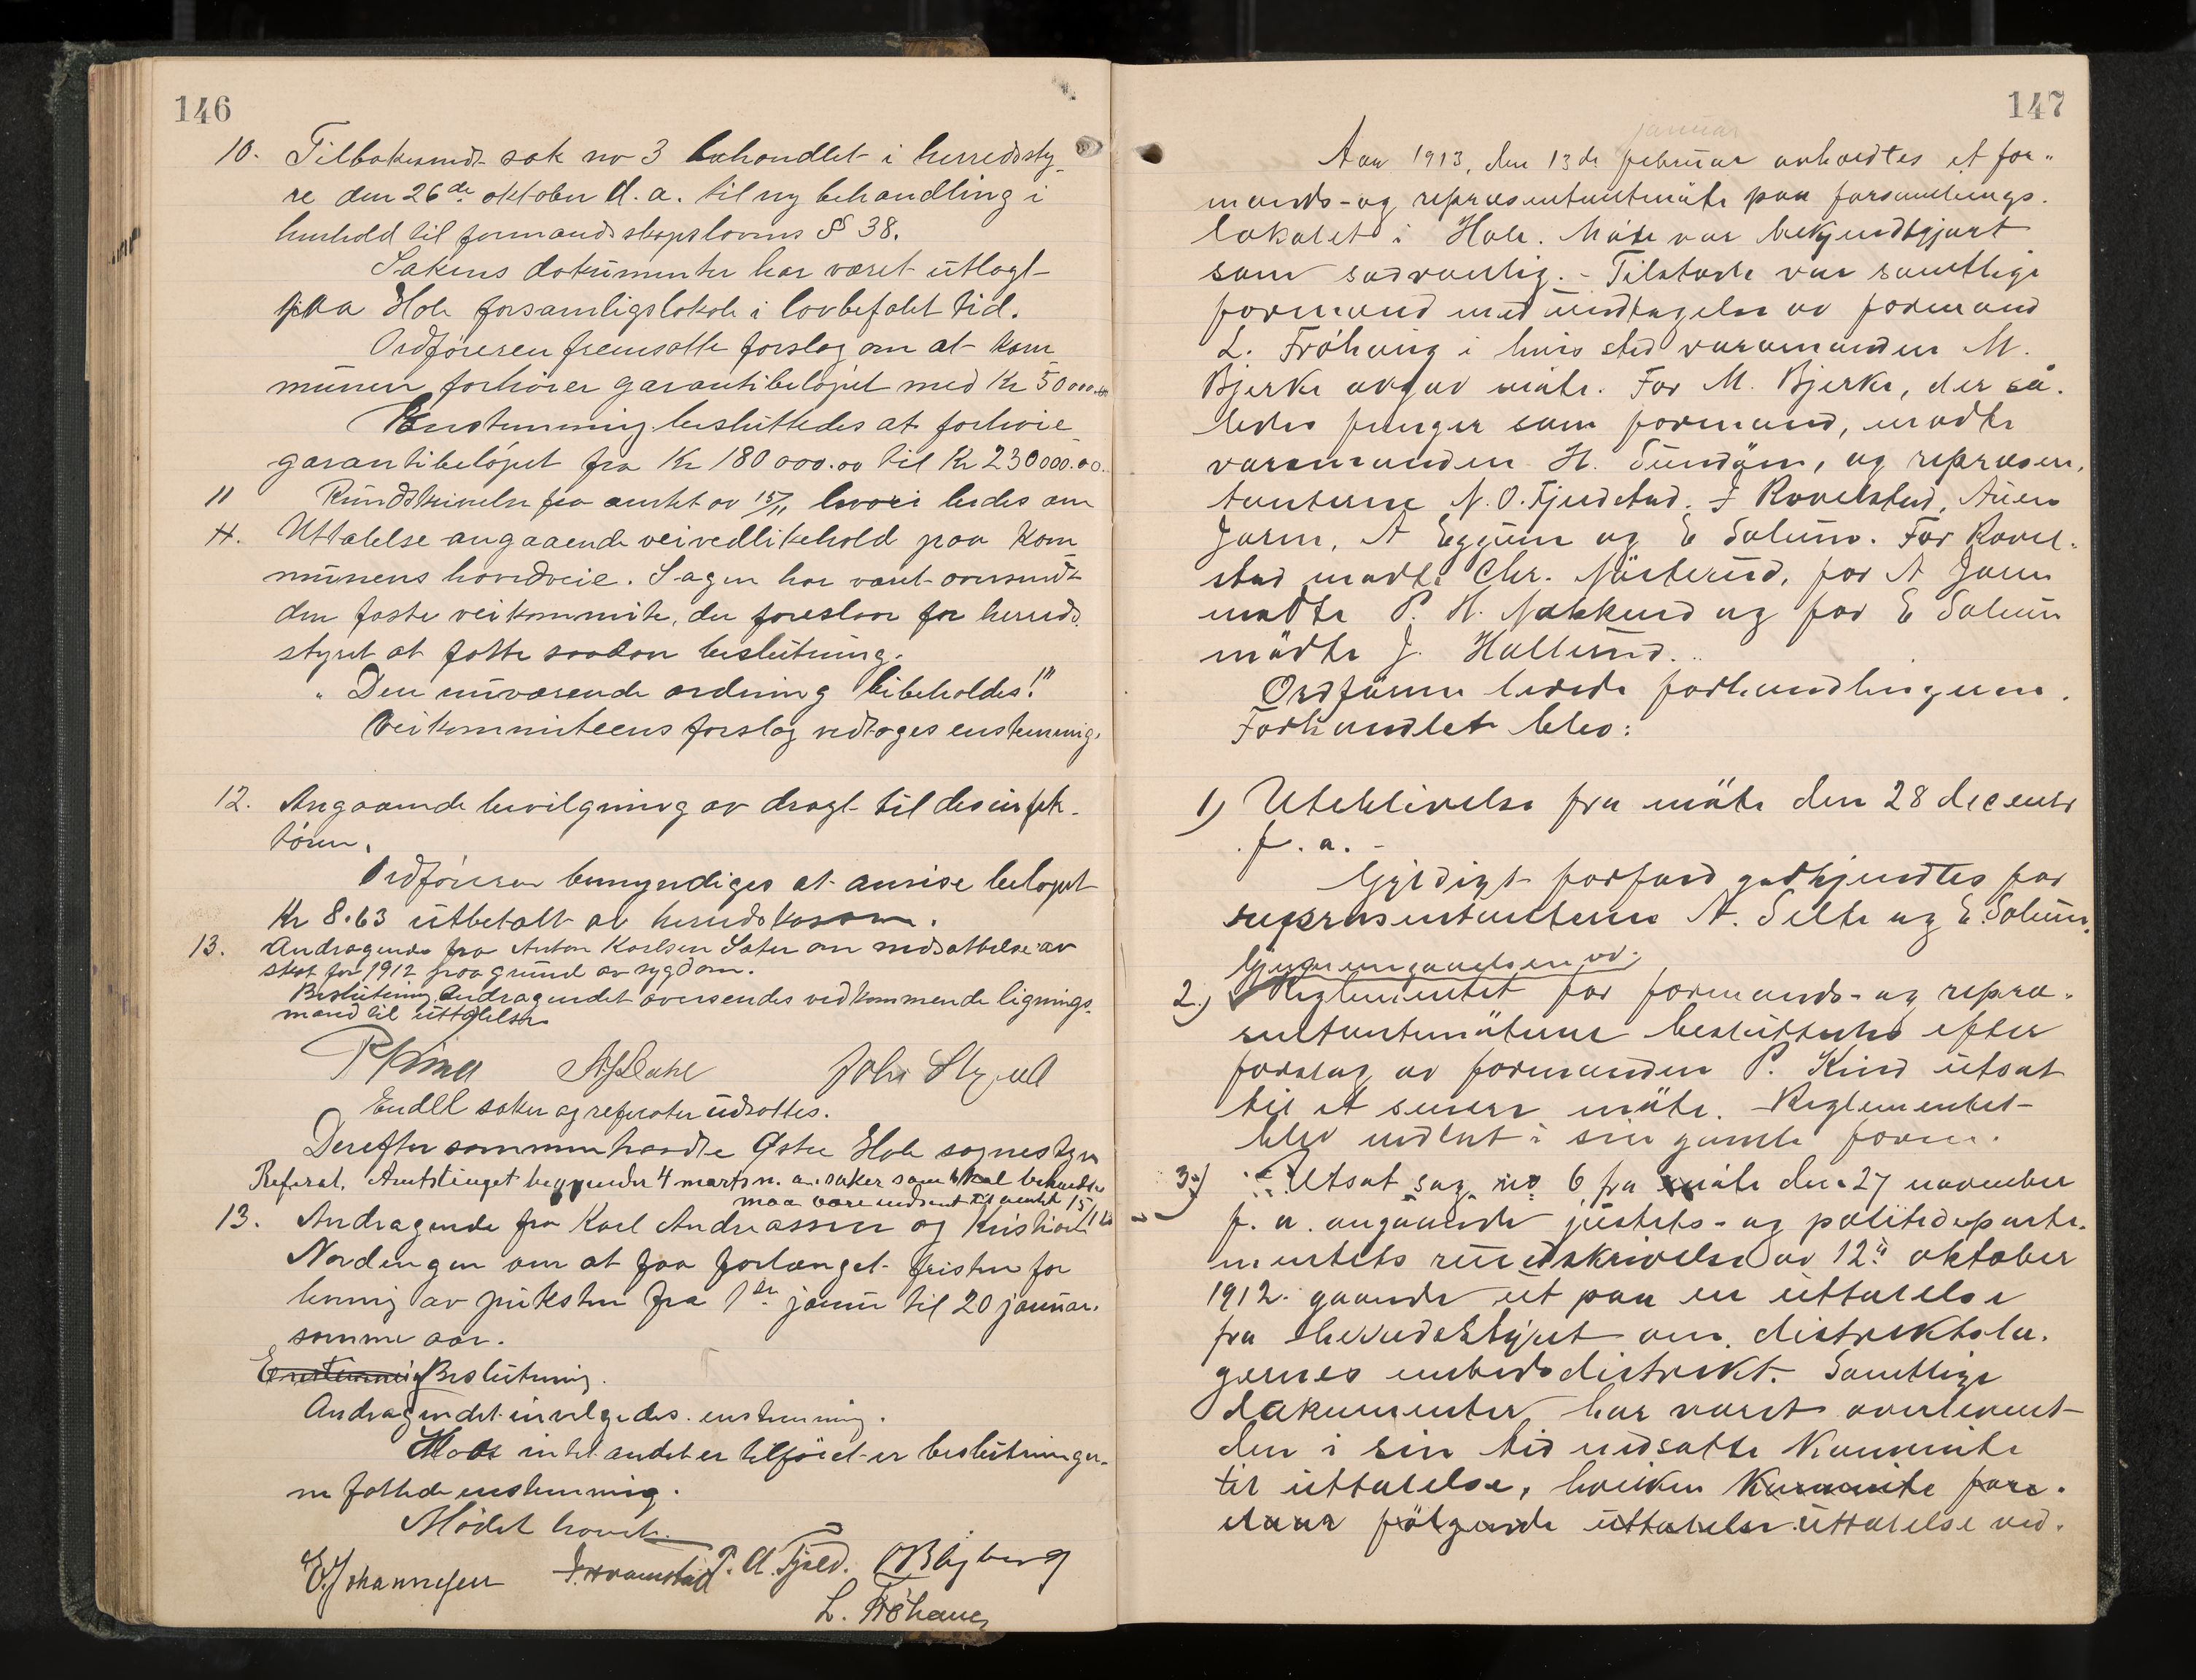 146
10. Tilbakesendt sak no 3 behandlet i herredssty-
re den 26de oktober d. a. til ny behandling i
henhold til formandsskapslovens § 38.
Sakens dokumenter har været utlagt
paa Hole forsamligslokale i lovbefalet tid.
Ordføreren fremsatte forslag om at kom
munen forhöier garantibelöpet med Kr 50000.00
Enstemmig besluttedes at forhöie
garantibelöpet fra Kr 180 000.00 til Kr 230 000.00.
11 Rundskrivelse fra amtet av 15/11 hvori bedes om
Uttalelse angaaende veivedlikehold paa kom
munens hovedveie. Sagen har været oversendt
den faste veikommite, der foreslaar for herreds
styret at fatte saadan beslutning.
"Den nuværende ordning bibeholdes!"
Veikommiteens forslag vedtoges enstemmig.
12. Angaaende bevilgning av dragt til desinfek-
tören.
Ordföreren bemyndiges at anvise belöpet
Kr 8.63 utbetalt av herredskassen.
13. Andragende fra Anton Karlsen Sater om nedsættelse av
skat for 1912 paa grund av sygdom.
Beslutning Andragendet oversendes vedkommende lignings-
mænd til uttalelse
P Kind A Dahl John Stryed
Endel saker og referater udsattes.
Derefter sammenhandle Østre Hole sognestyre
Referat. Amtstinget begynder 4 marts n. a. saker som skal behandles
maa være indsendt til amtet 15/1
13. Andragende fra Karl Andreassen og Kristian
Nordengen om at faa forlænget fristen for
levering av pukstein fra 1ste januar til 20 januar.
samme aar.
Enstemmig Beslutning.
Andragendet invilgedes enstemmig.
Hvor intet andet er tilföiet er beslutninger-
ne fattede enstemmig.
Mödet hævet.
E. Johannesen P. A. Fjeld. O Blyberg
L. Fröhaug
147
januar
Aar 1913, den 13de februar avholdtes et for-
mands- og repræsentantmöte paa forsamlings-
lokalet i Hole. Möte var bekjendtgjort
som sedvanlig. - Tilstede var samtlige
formænd med undtagelse av formand
L. Fröhaug i hvis sted varamanden M.
Bjerke avgav möte. For M. Bjerke, der så-
ledes funger som formand, mödte
varamanden H. Sundöen, og repræsen-
tanterne N. O. Fjeldstad. F Rovelstad, Aren
Jörn, A Eggum og E Solum. For Rovel-
stad mödte Chr. Mösterud, for A Jörn
mödte P. H. Nakkerud og for E Solum
mödte J. Hallund.
Ordfören ledede forhandlingerne.
Forhandlet blev:
1) Uteblivelse fra möte den 28 decembr
f. a.
Gyldigt forfald godkjendtes for
repræsentanterne A. Selte og E. Solum.
Gjennemgaaelsen av
2.) Reglementet for formands- og repræ-
sentantmöterne besluttedes efter
forslag av formanden P. Kind utsat
til et senere möte. Reglementet
blev vedtat i sin gamle form.
3.) Utsat sag no 6 fra möte den 27 november
f. a. angaaende justits- og politidepartе-
mentets rundskrivelse av 12te oktober
1912. gaaende ut paa en uttalelse
fra herredsstyret om distriktslæ-
gernes embedsdistrikt. Samtlige
dokumenter har været overlevert
den i sin tid nedsatte Kommite
til uttalelse, hvilken Kommite fore-
slaar fölgende uttalelse uttalelse ved.